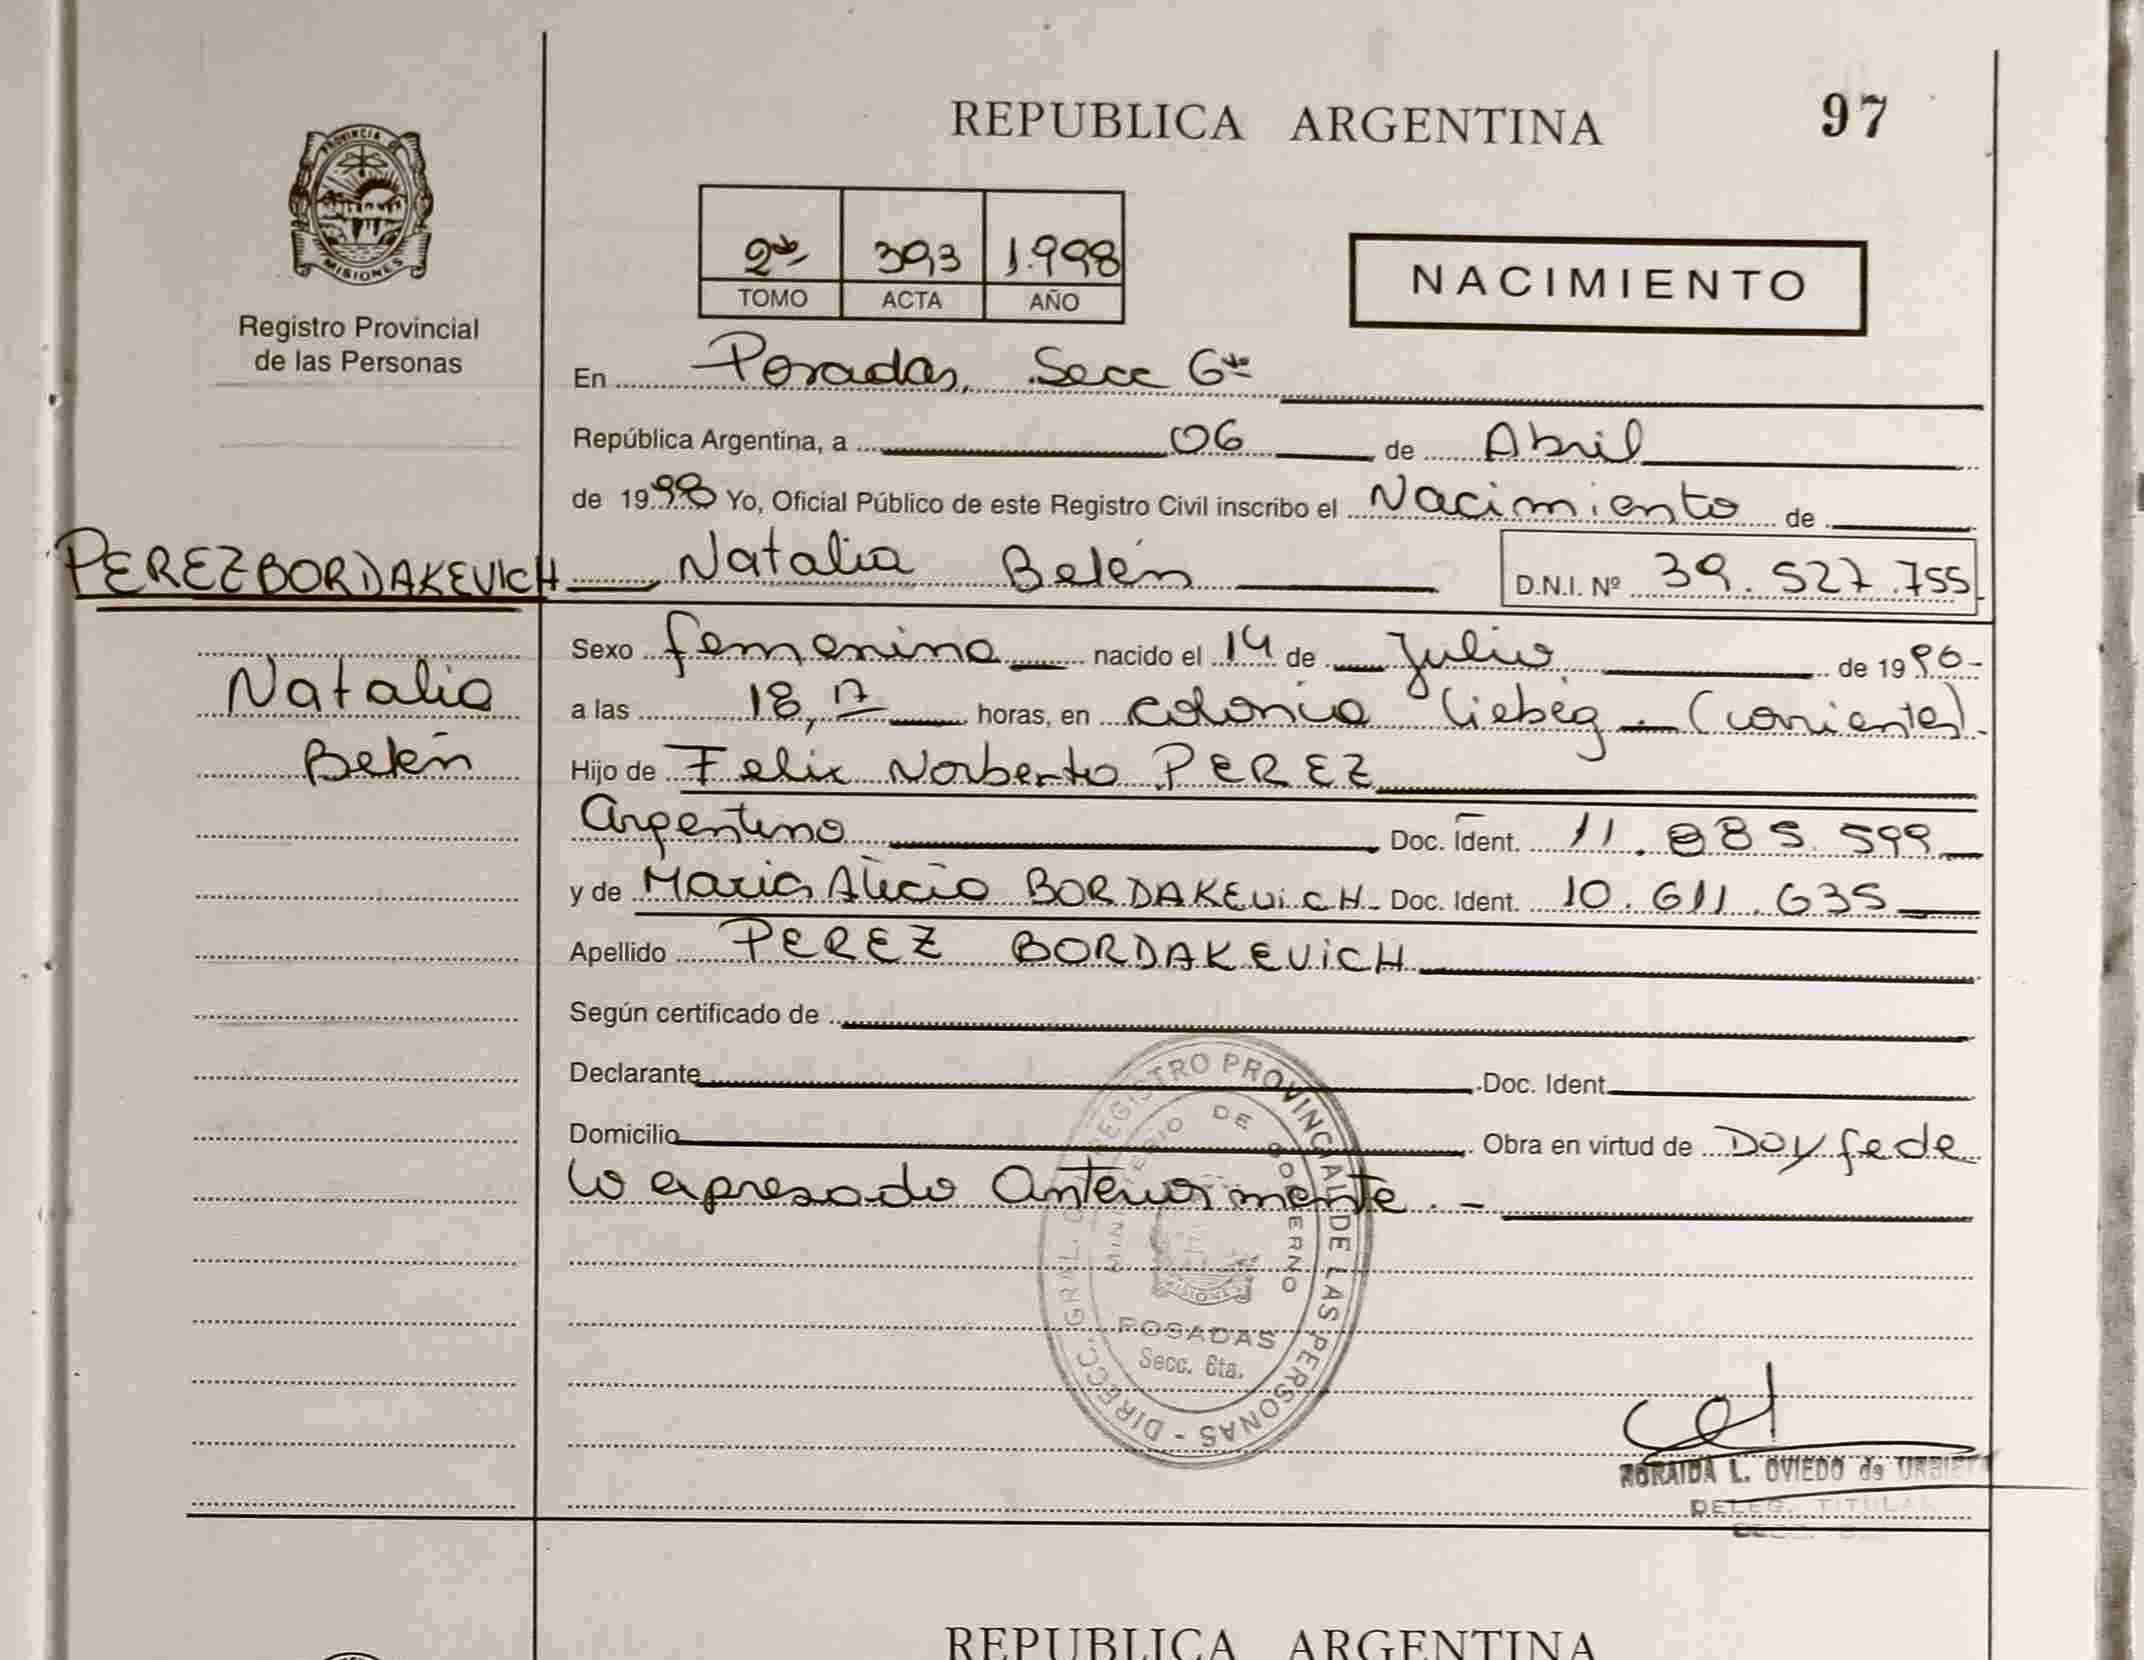 REPUBLICA ARGENTINA
97
PROVINCIA DE
MISIONES
Registro Provincial
de las Personas
2do 393 1.998
TOMO ACTA AÑO
NACIMIENTO
En Posadas, Secc 6ta
República Argentina, a 06 de Abril
de 1998 Yo, Oficial Público de este Registro Civil inscribo el Nacimiento de
PEREZ BORDAKEVICH
Natalia Belén D.N.I. Nº 39.527.755
Natalia
Belén
Sexo femenino nacido el 14 de Julio de 1996-
a las 18,17 horas, en Colonia Liebeg - (Corrientes)-
Hijo de Felix Norberto PEREZ
Argentino Doc. Ident. 11.885.599
y de Maria Alicia BORDAKEViCH - Doc. Ident. 10.611.635
Apellido PEREZ BORDAKEViCH
Según certificado de
Declarante Doc. Ident.
Domicilio Obra en virtud de Doy fe de
lo expresado Anteriormente.-
DIRECC. GRAL. REGISTRO PROVINCIAL DE LAS PERSONAS -
MINISTERIO DE GOBIERNO
MISIONES
POSADAS
Secc. 6ta.
L. OVIEDO de URBIETA
DELEG. TITULAR
REPUBLICA ARGENTINA